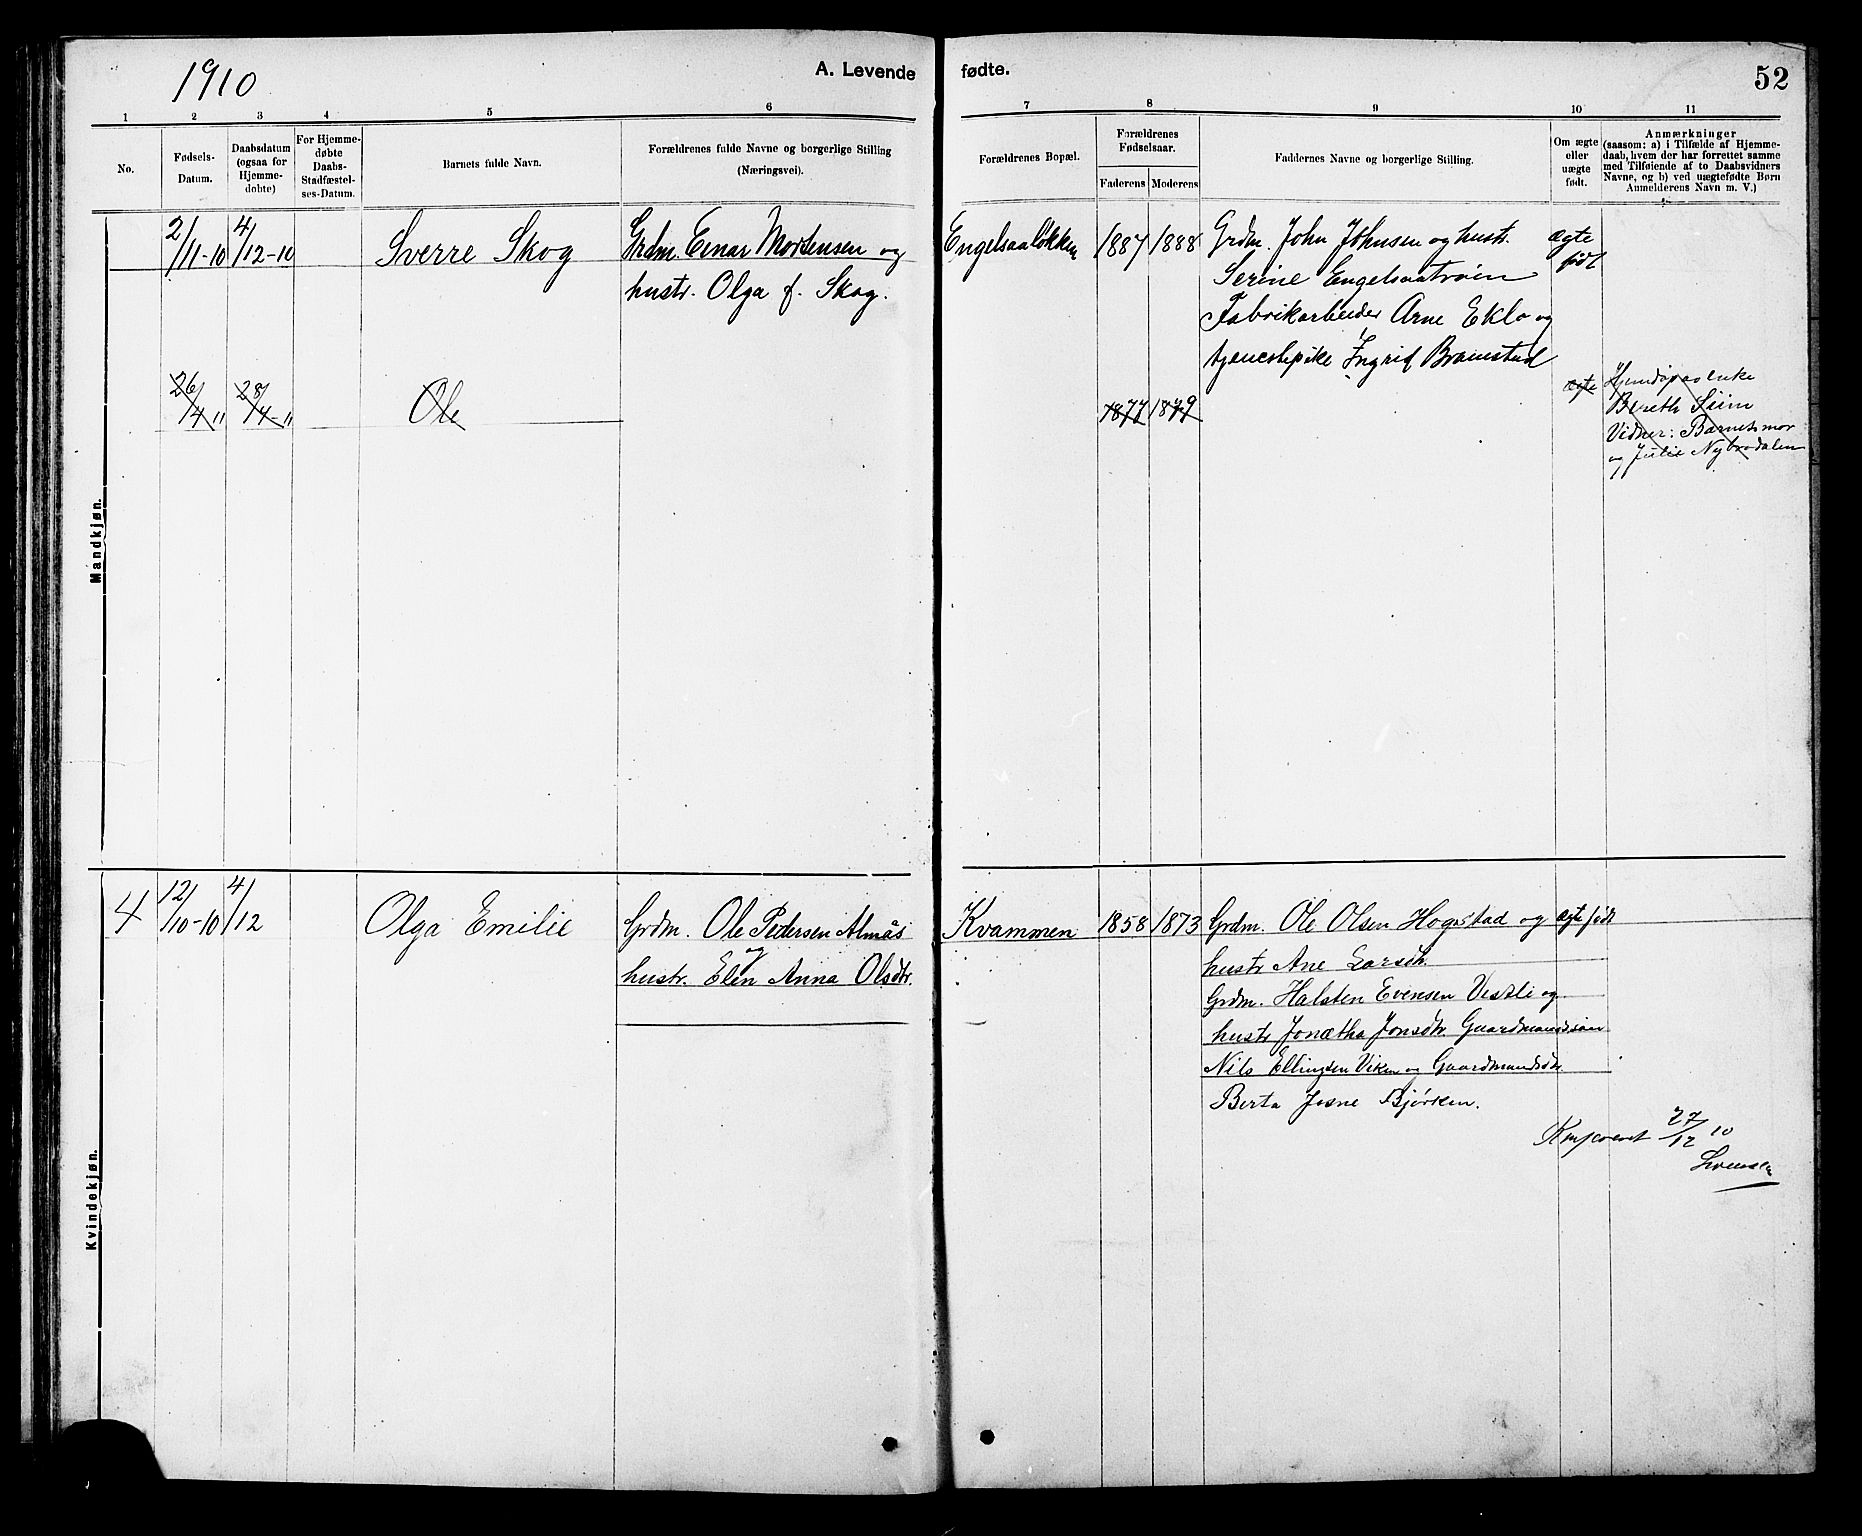 1910
A. Levende fødte.
52
1 2 3 4 5 6 7 8 9 10 11
No.
Fødsels-
Datum.
Daabsdatum
(ogsaa for
Hjemme-
døbte)
For Hjemme-
døbte
Daabs-
Stadfæstel-
ses-Datum.
Barnets fulde Navn.
Forældrenes fulde Navne og borgerlige Stilling
(Næringsvei).
Forældrenes Bopæl.
Forældrenes
Fødselsaar.
Faderens Moderens
Faddernes Navne og borgerlige Stilling.
Om ægte
eller
uægte
født.
Anmærkninger
(saasom: a) i Tilfælde af Hjemme-
daab, hvem der har forrettet samme
med Tilføiende af to Daabsvidners
Navne, og b) ved uægtefødte Børn
Anmelderens Navn m. V.)
Mandkjøn.
2/11-10
4/12-10
Sverre Skog
Grdm. Einar Mortensen og
hustr. Olga f. Skog.
Engelsaaløkken
1887 1888
Grdm. John Johnsen og hustr.
Serine Engelsaatrøen
Fabrikarbeider Arne Eklo og
tjenestepike Ingrid Bramstad
ægte
født
26/4 11
28/4-11
Ole
1877 1879
ægte
Bereth Siim
Vidner: Barnets mor
og Julie Nybrodalen
Kvindekjøn.
4
12/10-10
4/12
Olga Emilie
Grdm. Ole Pedersen Almås
og
hustr. Elen Anna Olsdtr.
Kvammen
1858 1873
Grdm. Ole Olsen Hogstad og
hustr Ane Larsdtr.
Grdm. Halsten Evensen Vestli og
hustr Jonetha Jonsdtr. Gaardmandssøn
Nils Ellingsen Viken og Gaardmandsdtr.
Berta Josne Bjørken.
ægte født
27/12 10